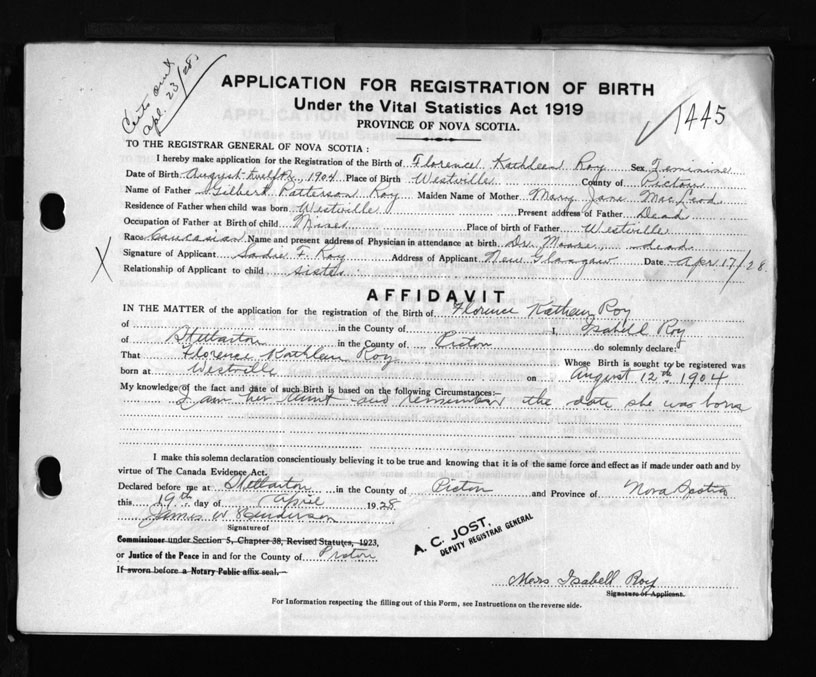 Certs Sent
Apl. 23/28
APPLICATION FOR REGISTRATION OF BIRTH
Under the Vital Statistics Act 1919
PROVINCE OF NOVA SCOTIA.
1445
TO THE REGISTRAR GENERAL OF NOVA SCOTIA :
I hereby make application for the Registration of the Birth of Florence Kathleen Roy Sex Feminine
Date of Birth August twelfth, 1904 Place of Birth Westville County of Pictou
Name of Father Gilbert Patterson Roy Maiden Name of Mother Mary Jane MacLeod
Residence of Father when child was born Westville Present address of Father Dead
Occupation of Father at Birth of child Miner Place of birth of Father Westville
Race Caucasian Name and present address of Physician in attendance at birth Dr. Moore dead
X Signature of Applicant Sadie F. Roy Address of Applicant New Glasgow Date Apr 17/28
Relationship of Applicant to child sister
AFFIDAVIT
IN THE MATTER of the application for the registration of the Birth of Florence Kathleen Roy
of in the County of I, Isabell Roy
of Stellarton in the County of Pictou do solemnly declare:
That Florence Kathleen Roy Whose Birth is sought to be registered was
born at Westville on August 12th 1904
My knowledge of the fact and date of such Birth is based on the following Circumstances:—
I am her Aunt and remember the date she was born
I make this solemn declaration conscientiously believing it to be true and knowing that it is of the same force and effect as if made under oath and by
virtue of The Canada Evidence Act.
Declared before me at Stellarton in the County of Pictou and Province of Nova Scotia
this 19th day of April 1928
James W Henderson
Signature of
Commissioner under Section 5, Chapter 38, Revised Statutes, 1923,
or Justice of the Peace in and for the County of Pictou
If sworn before a Notary Public affix seal.
A. C. JOST,
DEPUTY REGISTRAR GENERAL
Mrs Isabell Roy
Signature of Applicant.
For Information respecting the filling out of this Form, see Instructions on the reverse side.